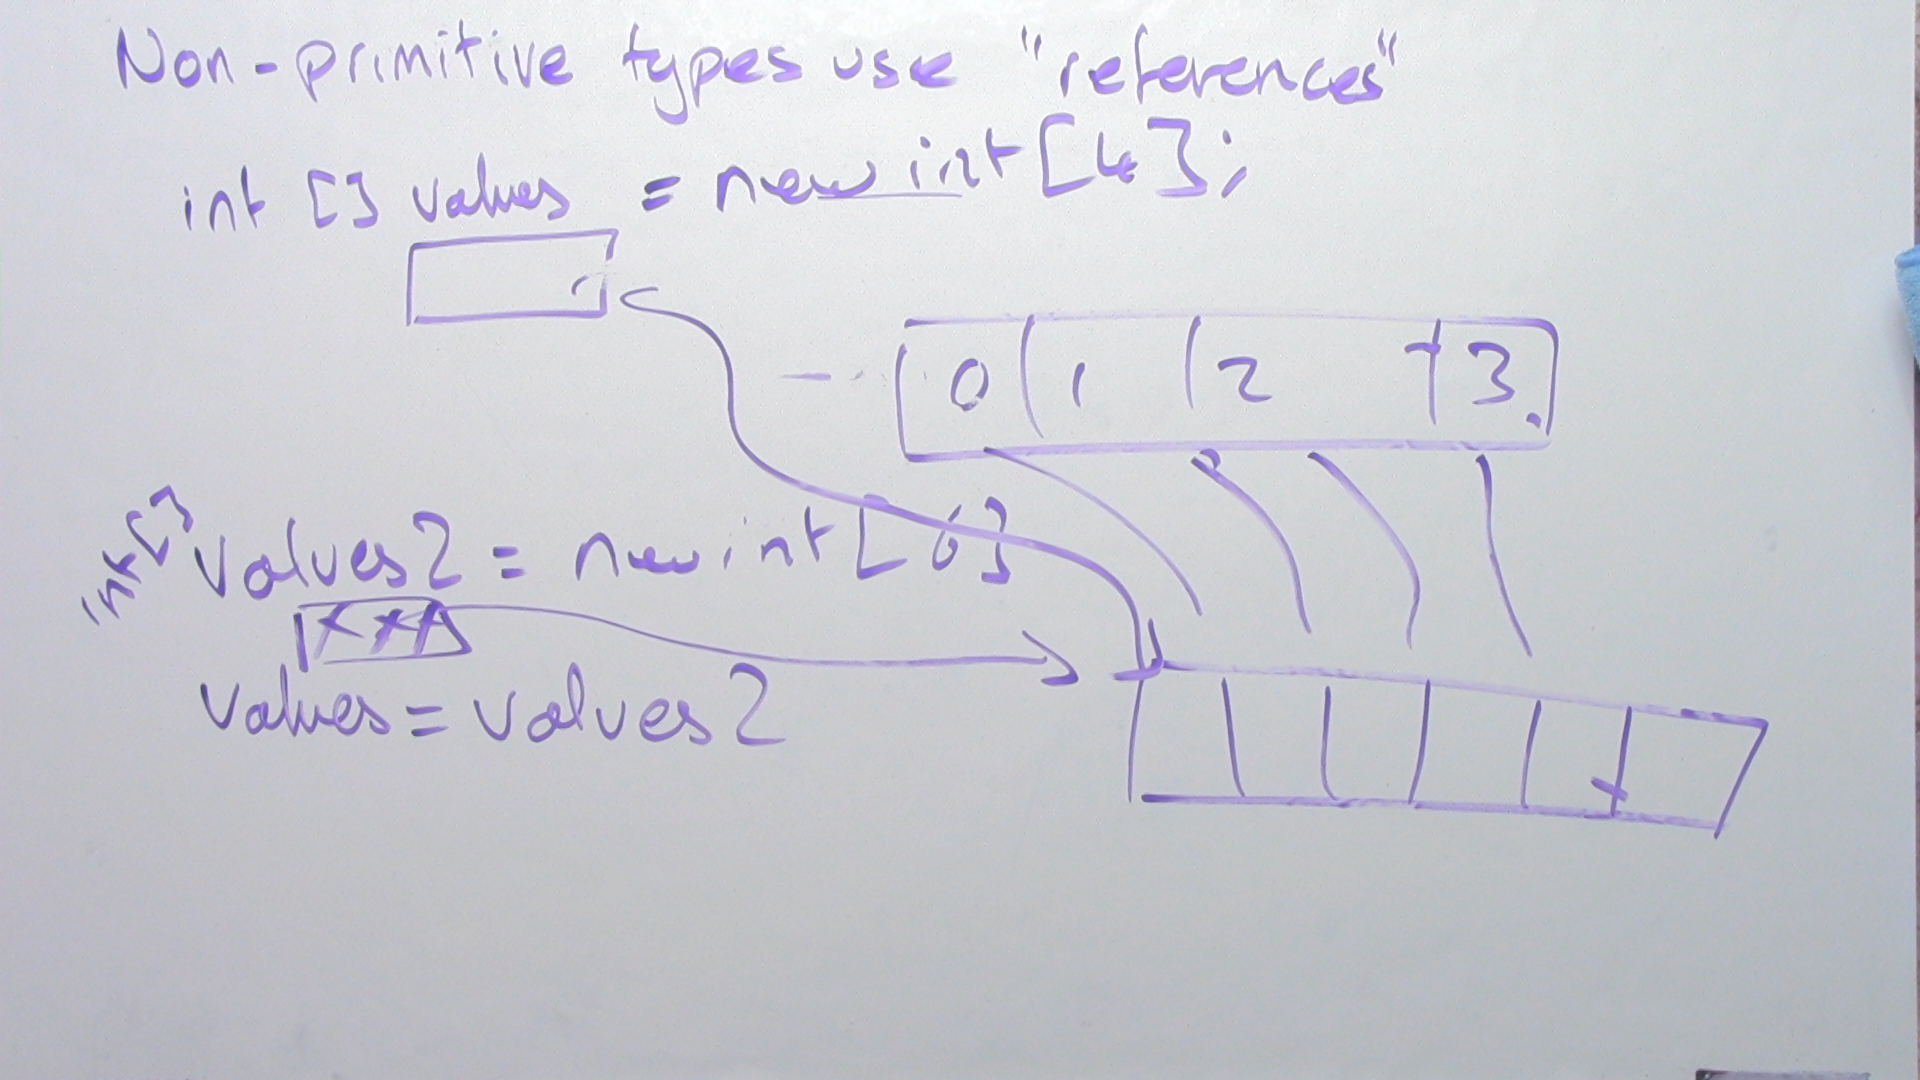 Non-primitive types use "references"
int [] values = new int [4];
0 1 2 3
int[] values2 = new int [6]
XXX
values = values2